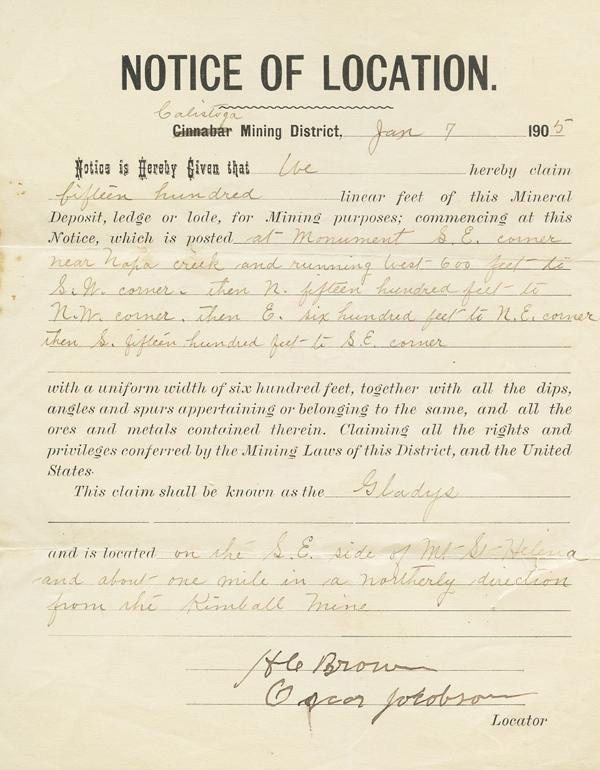 NOTICE OF LOCATION.
Calistoga
Cinnabar Mining District, Jan 7 1905
Notice is Hereby Given that We hereby claim
fifteen hundred linear feet of this Mineral
Deposit, ledge or lode, for Mining purposes; commencing at this
Notice, which is posted at Monument S.E. corner
near Napa creek and running West 600 feet to
S.W. corner. then N. fifteen hundred feet to
N.W. corner. then E. six hundred feet to N.E. corner
then S. fifteen hundred feet to S.E. corner
with a uniform width of six hundred feet, together with all the dips,
angles and spurs appertaining or belonging to the same, and all the
ores and metals contained therein. Claiming all the rights and
privileges conferred by the Mining Laws of this District, and the United
States.
This claim shall be known as the Gladys
and is located on the S.E. side of Mt St Helena
and about one mile in a northerly direction
from the Kimball Mine
H C Brown
Oscar Jocobson
Locator